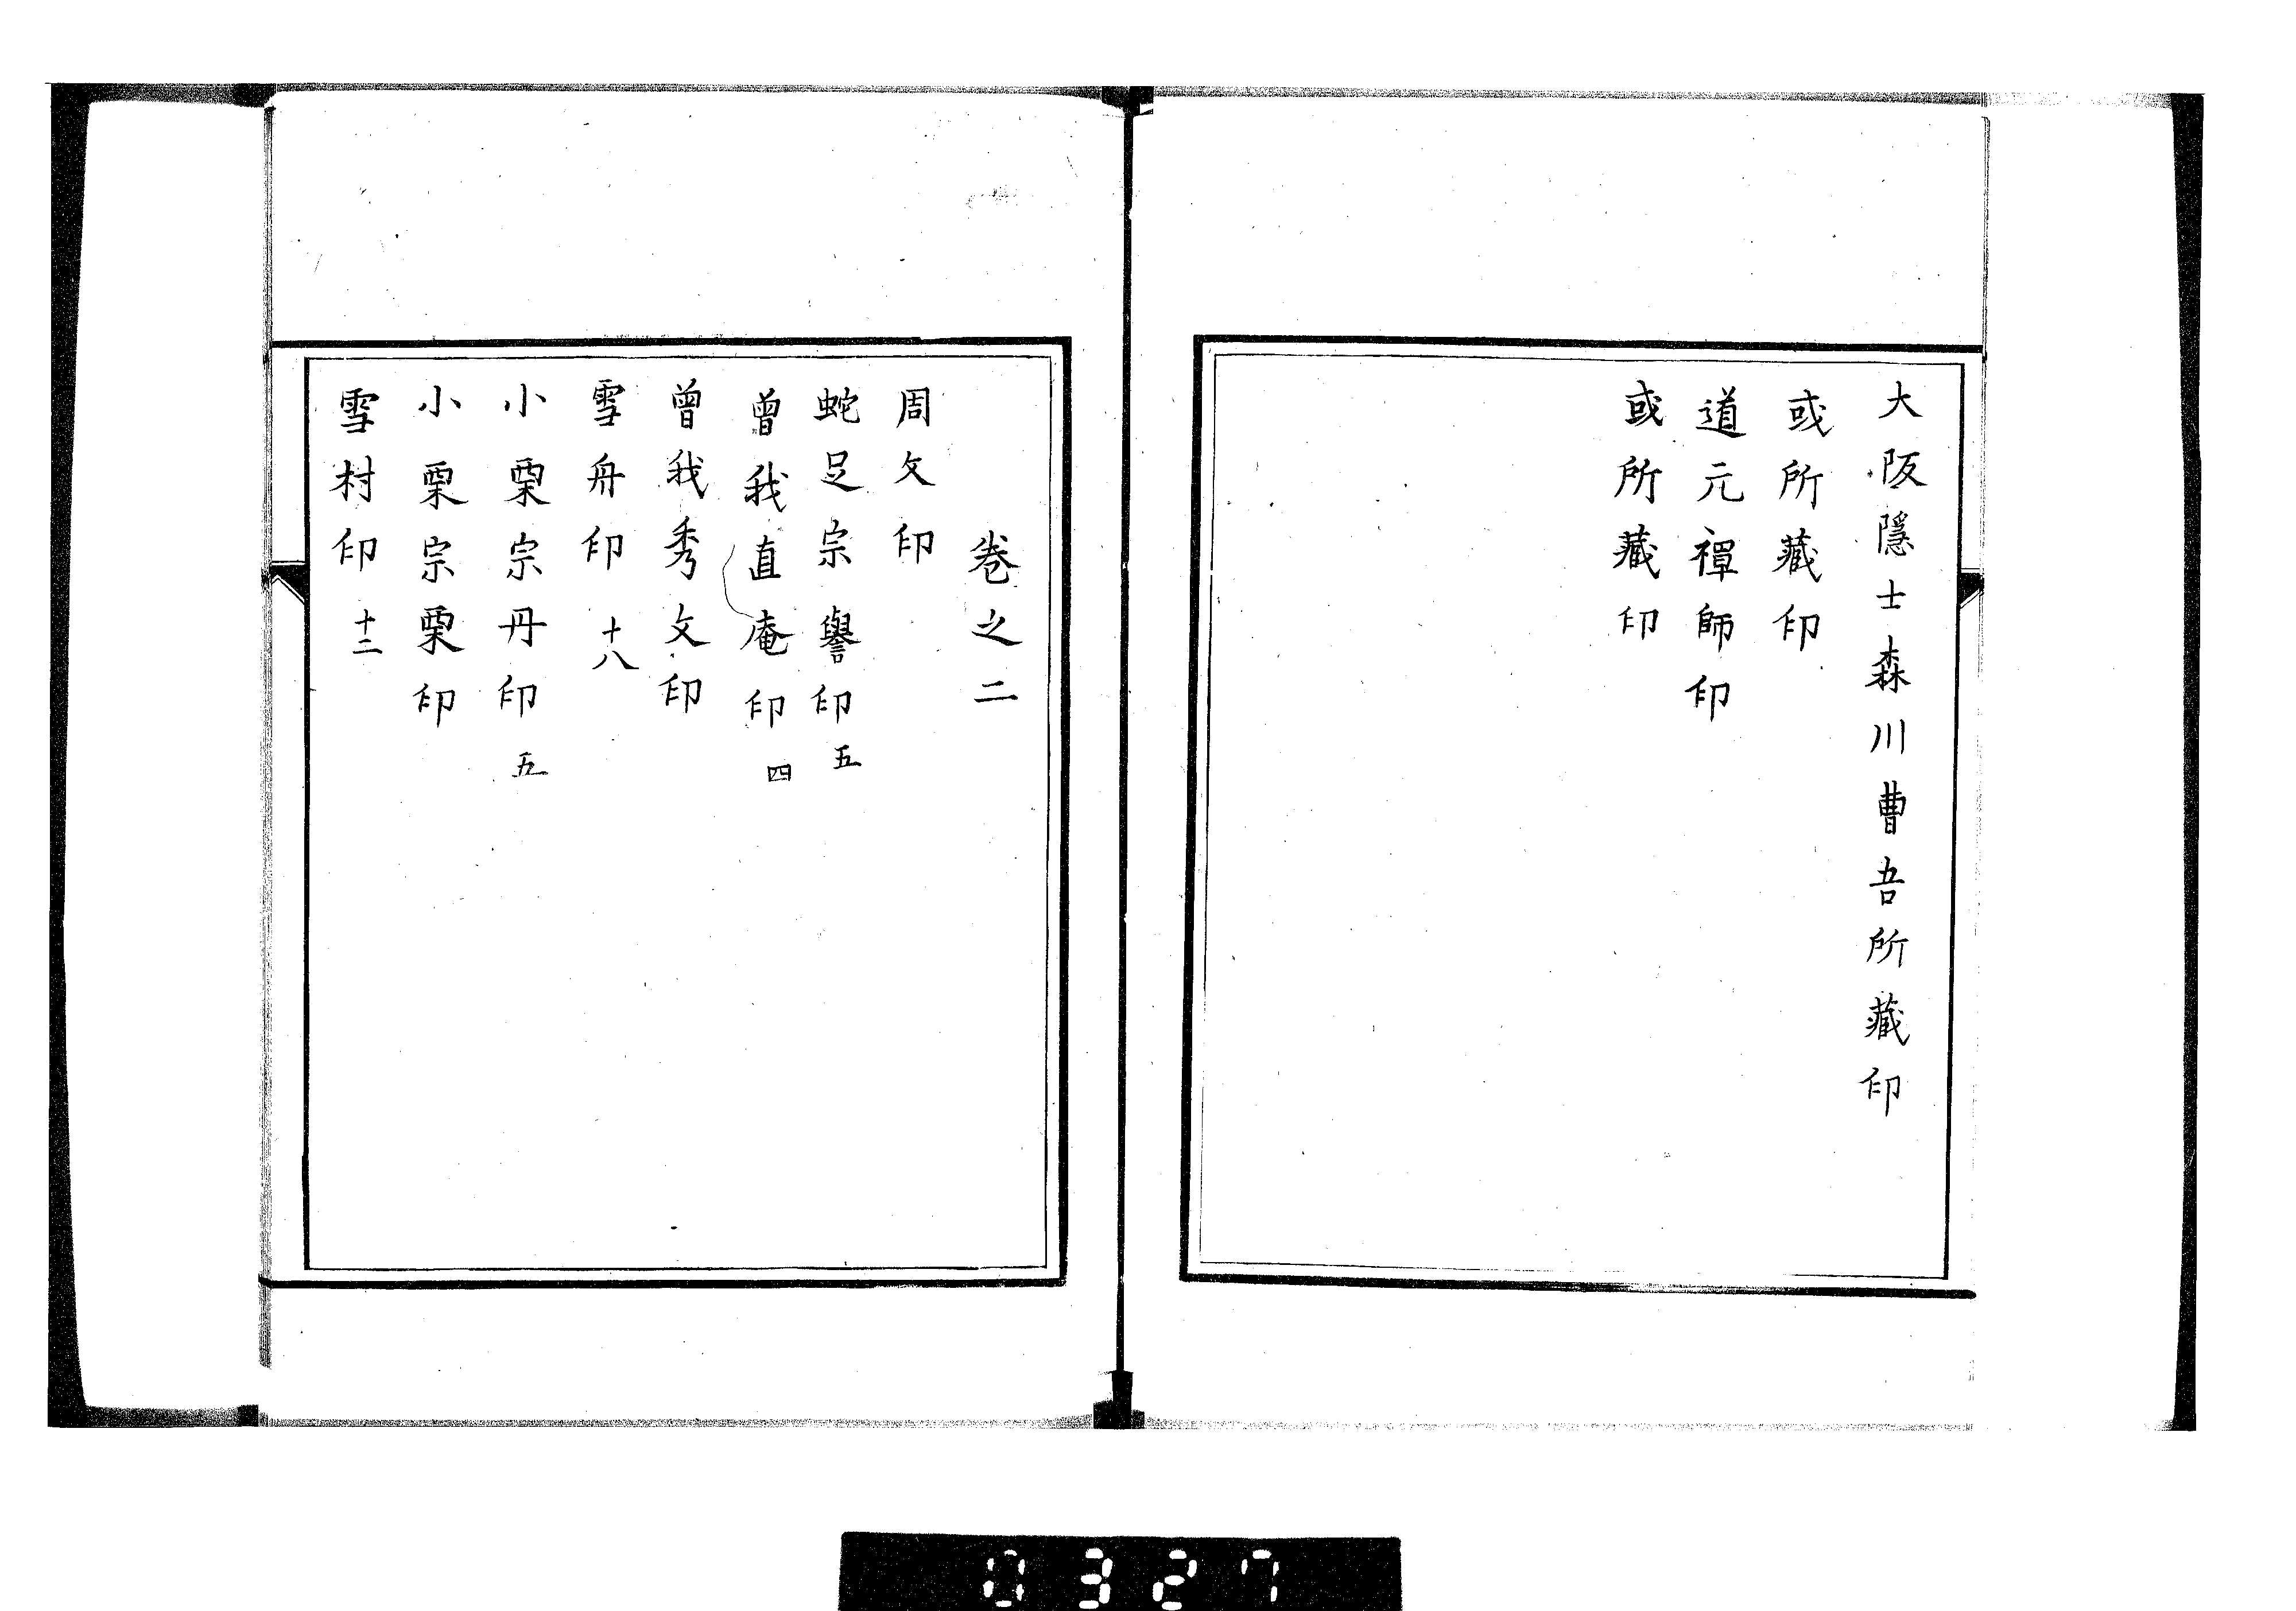 大阪隱士森川曹吾所藏印
或所藏印
道元禪師印
或所藏印
卷之二
周文印
蛇足宗譽印 五
曾我直庵印 四
曾我秀文印
雪舟印 十八
小栗宗丹印 五
小栗宗栗印
雪村印 十二
0327